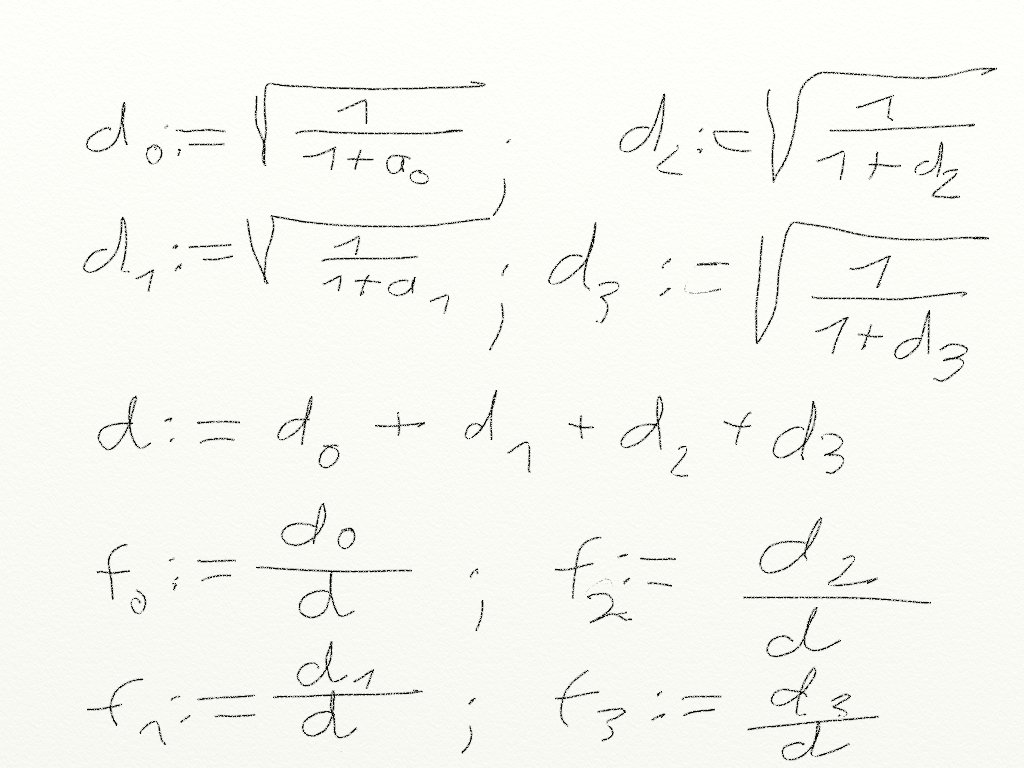 d₀ := √(1/(1+a₀)) ; d₂ := √(1/(1+d₂))
d₁ := √(1/(1+a₁)) ; d₃ := √(1/(1+d₃))
d := d₀ + d₁ + d₂ + d₃
f₀ := d₀/d ; f₂ := d₂/d
f₁ := d₁/d ; f₃ := d₃/d